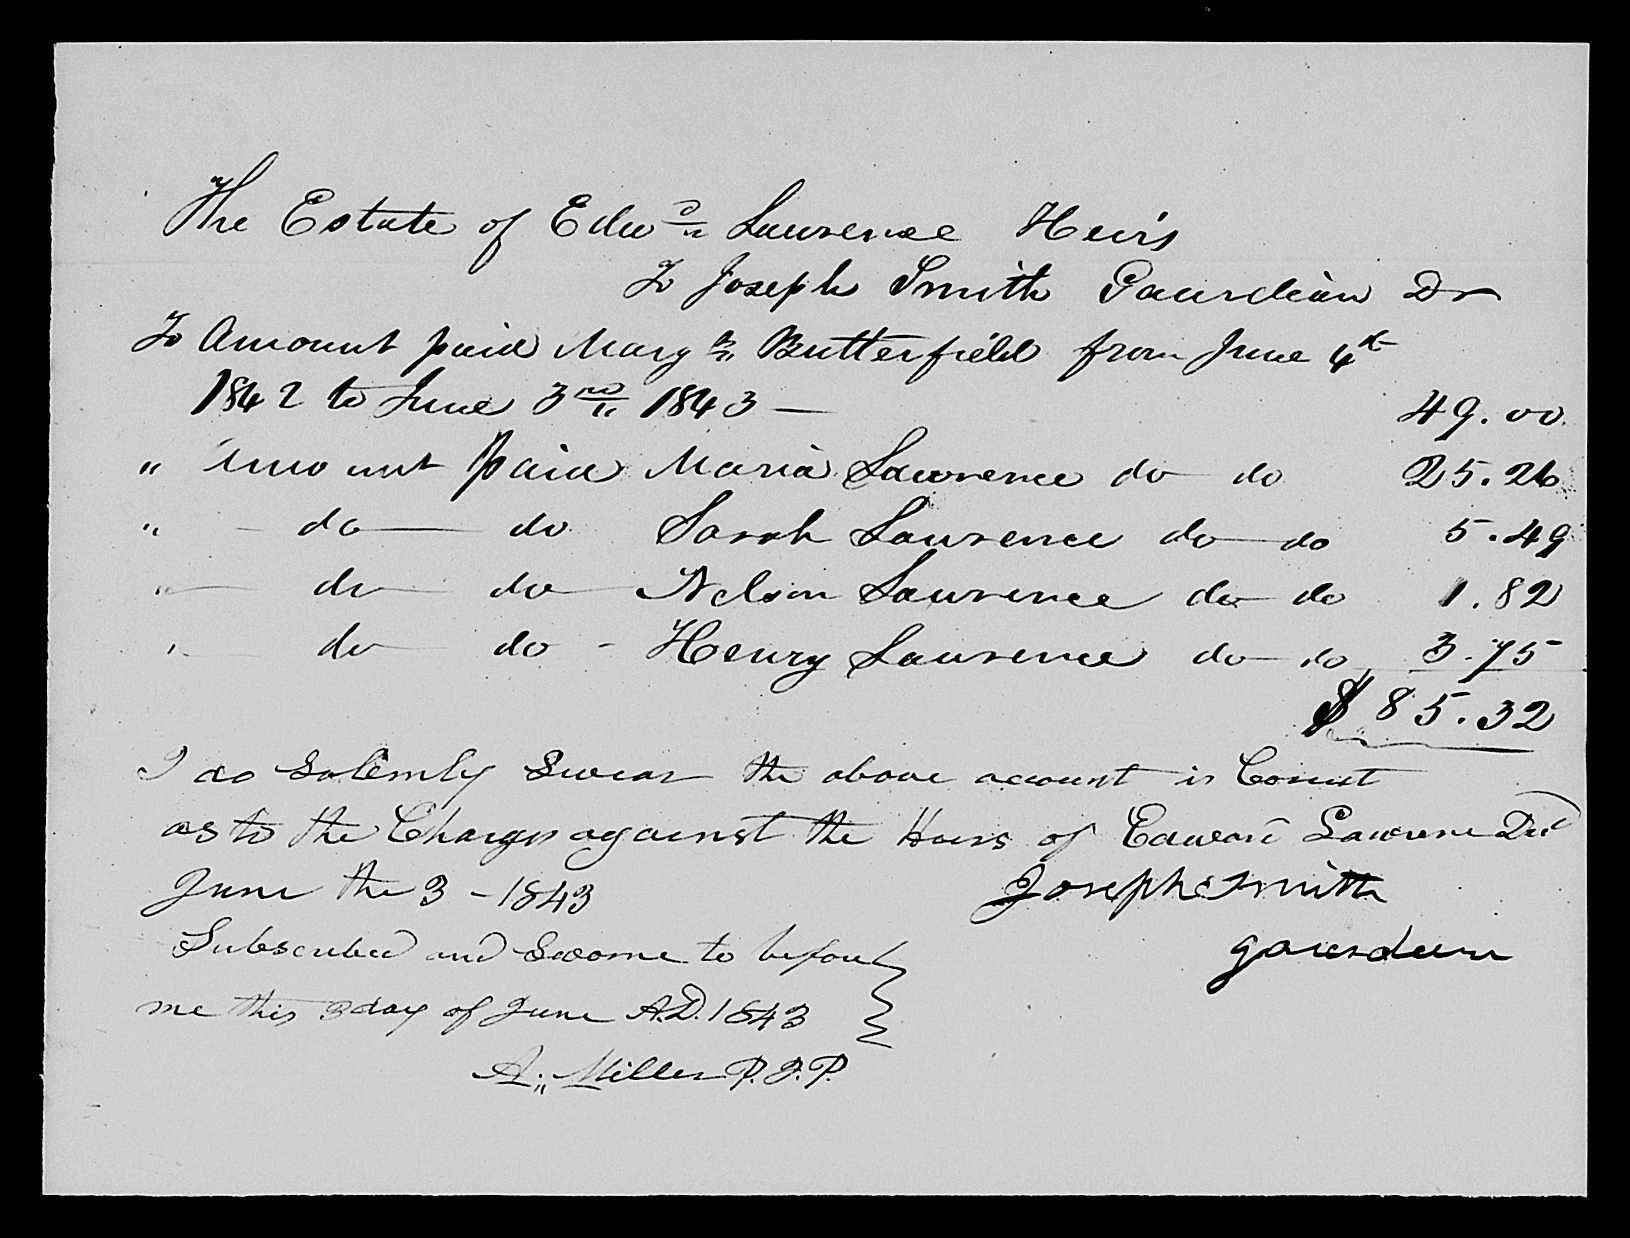 The Estate of Edwd Lawrence Heirs
To Joseph Smith Gaurdian Dr
To Amount paid Margt Butterfield from June 4th
1842 to June 3rd 1843 — 49.00
" Amount paid Maria Lawrence do do 25.26
" — do — do Sarah Lawrence do — do 5.49
" — do — do — Nelson Lawrence do — do 1.82
" — do — do - Henry Lawrence do — do 3.75
$ 85.32
I do Solemly Swear the above account is Correct
as to the Charges against the Heirs of Edward Lawrence Decd
June the 3 - 1843 Joseph Smith
Subscribed and Sworne to before gaurdian
me this 3 day of June A.D. 1843
A. Miller P. J. P.